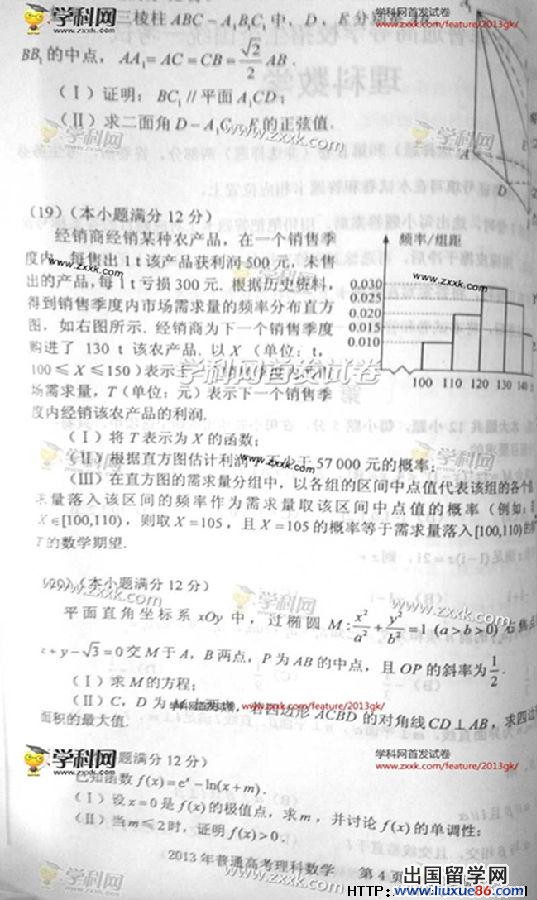 学科网
学科网首发试卷
www.zxxk.com/feature/2013gk/
三棱柱 ABC－A₁B₁C₁ 中，D，E 分别是
BB₁ 的中点，AA₁=AC=CB=√2/2 AB．
（Ⅰ）证明：BC₁ // 平面 A₁CD；
（Ⅱ）求二面角 D－A₁C－E 的正弦值．
学科网
www.zxxk.com
学科网
www.zxxk.com
A
D
（19）（本小题满分 12 分）
经销商经销某种农产品，在一个销售季
度内，每售出 1 t 该产品获利润 500 元，未售
出的产品，每 1 t 亏损 300 元．根据历史资料，
得到销售季度内市场需求量的频率分布直方
图，如右图所示．经销商为下一个销售季度
购进了 130 t 该农产品．以 X（单位：t，
100≤X≤150）表示
场需求量，T（单位：元）表示下一个销售季
度内经销该农产品的利润．
www.zxxk.com
学科网首发试卷
频率/组距
0.030
0.025
0.020
0.015
0.010
100 110 120 130 140
（Ⅰ）将 T 表示为 X 的函数；
（Ⅱ）根据直方图估计利润 T 不少于 57 000 元的概率；
www.zxxk.com
（Ⅲ）在直方图的需求量分组中，以各组的区间中点值代表该组的各个
求量落入该区间的频率作为需求量取该区间中点值的概率（例如：
X∈[100,110)，则取 X=105，且 X=105 的概率等于需求量落入[100,110)的
T 的数学期望．
（20）（本小题满分 12 分）
学科网
www.zxxk.com
平面直角坐标系 xOy 中，过椭圆 M: x²/a² + y²/b² = 1 (a>b>0) 右焦点
x+y－√3=0 交 M 于 A，B 两点，P 为 AB 的中点，且 OP 的斜率为 1/2．
（Ⅰ）求 M 的方程；
（Ⅱ）C，D 为 M 上两点，若四边形 ACBD 的对角线 CD⊥AB，求四边
学科网首发试卷，www.zxxk.com/feature/2013gk/
面积的最大值．
学科网
学科网首发试卷
www.zxxk.com/feature/2013gk/
小题满分 12 分）
已知函数 f(x)=eˣ－ln(x+m)．
（Ⅰ）设 x=0 是 f(x) 的极值点，求 m，并讨论 f(x) 的单调性；
（Ⅱ）当 m≤2 时，证明 f(x)>0．
学科网
www.zxxk.com
2013 年普通高考理科数学 第 4 页
出国留学网
HTTP:www.liuxue86.com